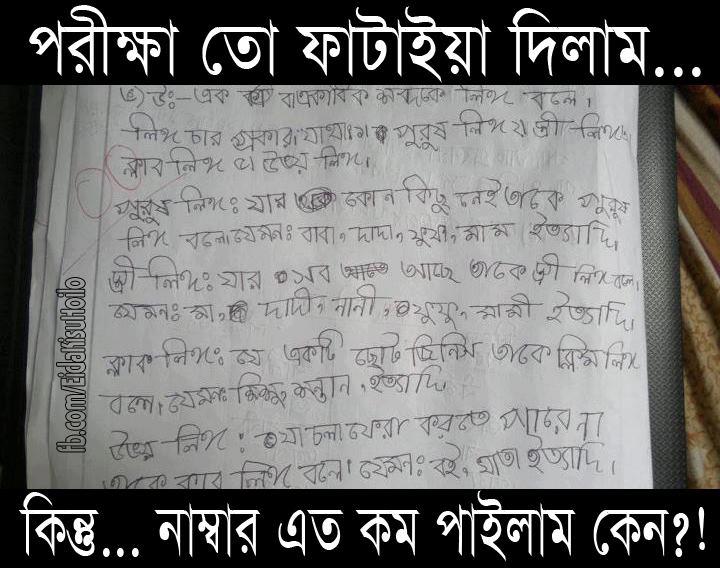 পরীক্ষা তো ফাটাইয়া দিলাম...
উঃ- এক বা একাধিক শব্দকে লিঙ্গ বলে।
লিঙ্গ চার প্রকার। যথাঃ পুরুষ লিঙ্গ স্ত্রী লিঙ্গ
ক্লাব লিঙ্গ ও উভয় লিঙ্গ।
পুরুষ লিঙ্গঃ যার কোন কিছু নেই তাকে পুরুষ
লিঙ্গ বলে। যেমনঃ বাবা, দাদা, ফুফা, মামা ইত্যাদি।
স্ত্রী লিঙ্গঃ যার সব আছে তাকে স্ত্রী লিঙ্গ বলে।
যেমনঃ মা, দাদী, নানী, ফুফু, মামী ইত্যাদি।
ক্লাব লিঙ্গঃ যে একটি ছোট জিনিস তাকে লিঙ্গ
বলে। যেমনঃ শিশু সন্তান, ইত্যাদি।
উভয় লিঙ্গঃ যা চলা ফেরা করতে পারে না
তাকে লিঙ্গ বলে। যেমনঃ বই, খাতা ইত্যাদি।
fb.com/EidaKisuHoilo
কিন্তু... নাম্বার এত কম পাইলাম কেন?!